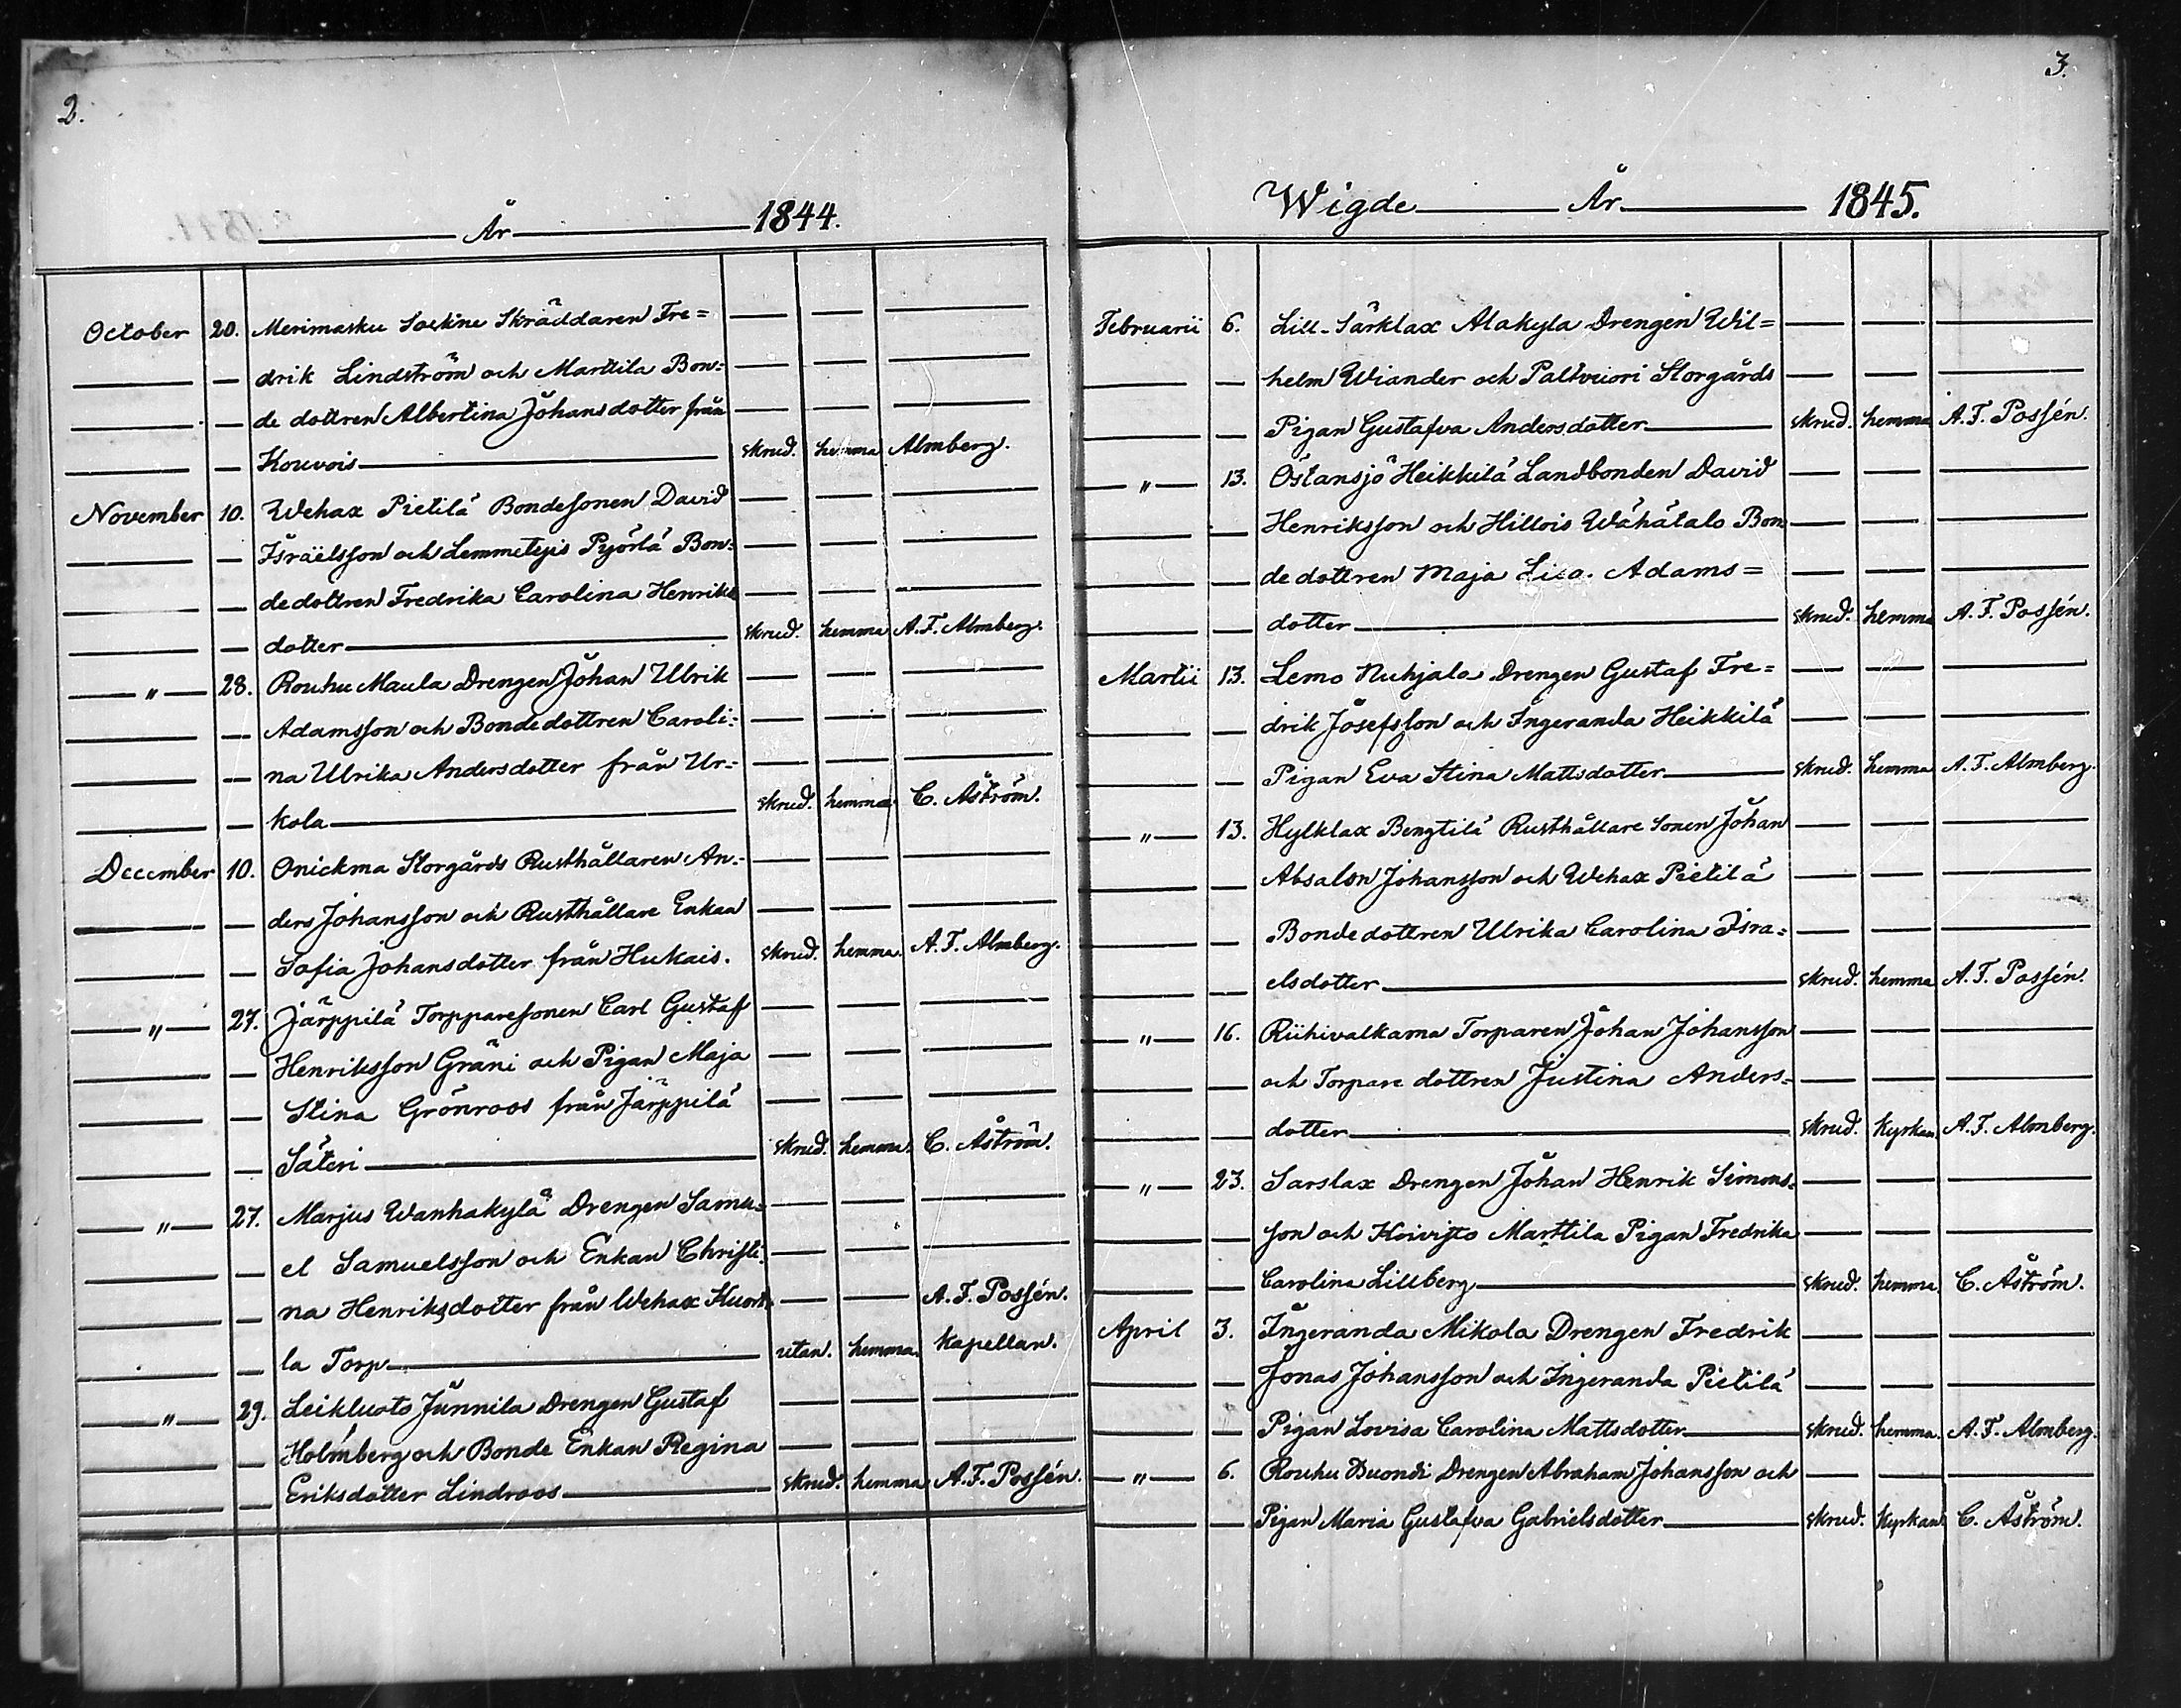 2.
År 1844.
October 20. Merimasku Sockne Skräddaren Fre=
drik Lindström och Marttila Bon=
de dottren Albertina Johansdotter från
Kouvois skrud. hemma Almberg.
November 10. Wehax Pietilä Bondesonen David
Israëlsson och Lemmetyis Pyörlä Bon=
dedottren Fredrika Carolina Henriks
dotter skrud. hemma A.F. Almberg.
" 28. Rouhu Maula Drengen Johan Ulrik
Adamsson och Bondedottren Caroli=
na Ulrika Andersdotter från Ur=
kola skrud. hemma C. Åström.
December 10. Onickma Storgårds Rusthållaren An=
ders Johansson och Rusthållare Enkan
Sofia Johansdotter från Hukais. skrud. hemma. A.F. Almberg.
" 27. Järppilä Torpparesonen Carl Gustaf
Henriksson Gräni och Pigan Maja
Stina Grönroos från Järppilä
Säteri skrud. hemma. C. Åström.
" 27. Marjus Wanhakylä Drengen Samu=
el Samuelsson och Enkan Christi=
na Henriksdotter från Wehax A.F. Possén.
la Torp utan. hemma. Kapellan.
" 29. Leikluoto Junnila Drengen Gustaf
Holmberg och Bonde Enkan Regina
Eriksdotter Lindroos skrud. hemma A.F. Possén.
3.
Wigde År 1845.
Februarii 6. Lill-Särklax Alakyla Drengen Wil=
helm Wiander och Paltvuori Storgårds
Pigan Gustafva Andersdotter skrud. hemma A.F. Possén.
" 13. Östansjö Heikkilä Landbonden David
Henriksson och Hillois Wähätalo Bon
dedottren Maja Lisa Adams=
dotter skrud. hemma A.F. Possén.
Martii 13. Lemo Nuhjala Drengen Gustaf Fre=
drik Josefsson och Ingeranda Heikkilä
Pigan Eva Stina Mattsdotter skrud. hemma A.F. Almberg.
" 13. Hylklax Bengtilä Rusthållare Sonen Johan
Absalon Johansson och Wehax Pietilä
Bondedottren Ulrika Carolina Isra=
elsdotter skrud. hemma A.F. Possén.
" 16. Riihivalkama Torparen Johan Johansson
och Torpare dottren Justina Anders=
dotter skrud. Kyrkan. A.F. Almberg.
" 23. Sarslax Drengen Johan Henrik Simons=
son och Koivisto Marttila Pigan Fredrika
Carolina Lillberg skrud. hemma. C. Åström.
April 3. Ingeranda Mikola Drengen Fredrik
Jonas Johansson och Ingeranda Pietilä
Pigan Lovisa Carolina Mattsdotter skrud. hemma. A.F. Almberg.
" 6. Rouhu Drengen Abraham Johansson och
Pigan Maria Gustafva Gabrielsdotter skrud. Kyrkan C. Åström.